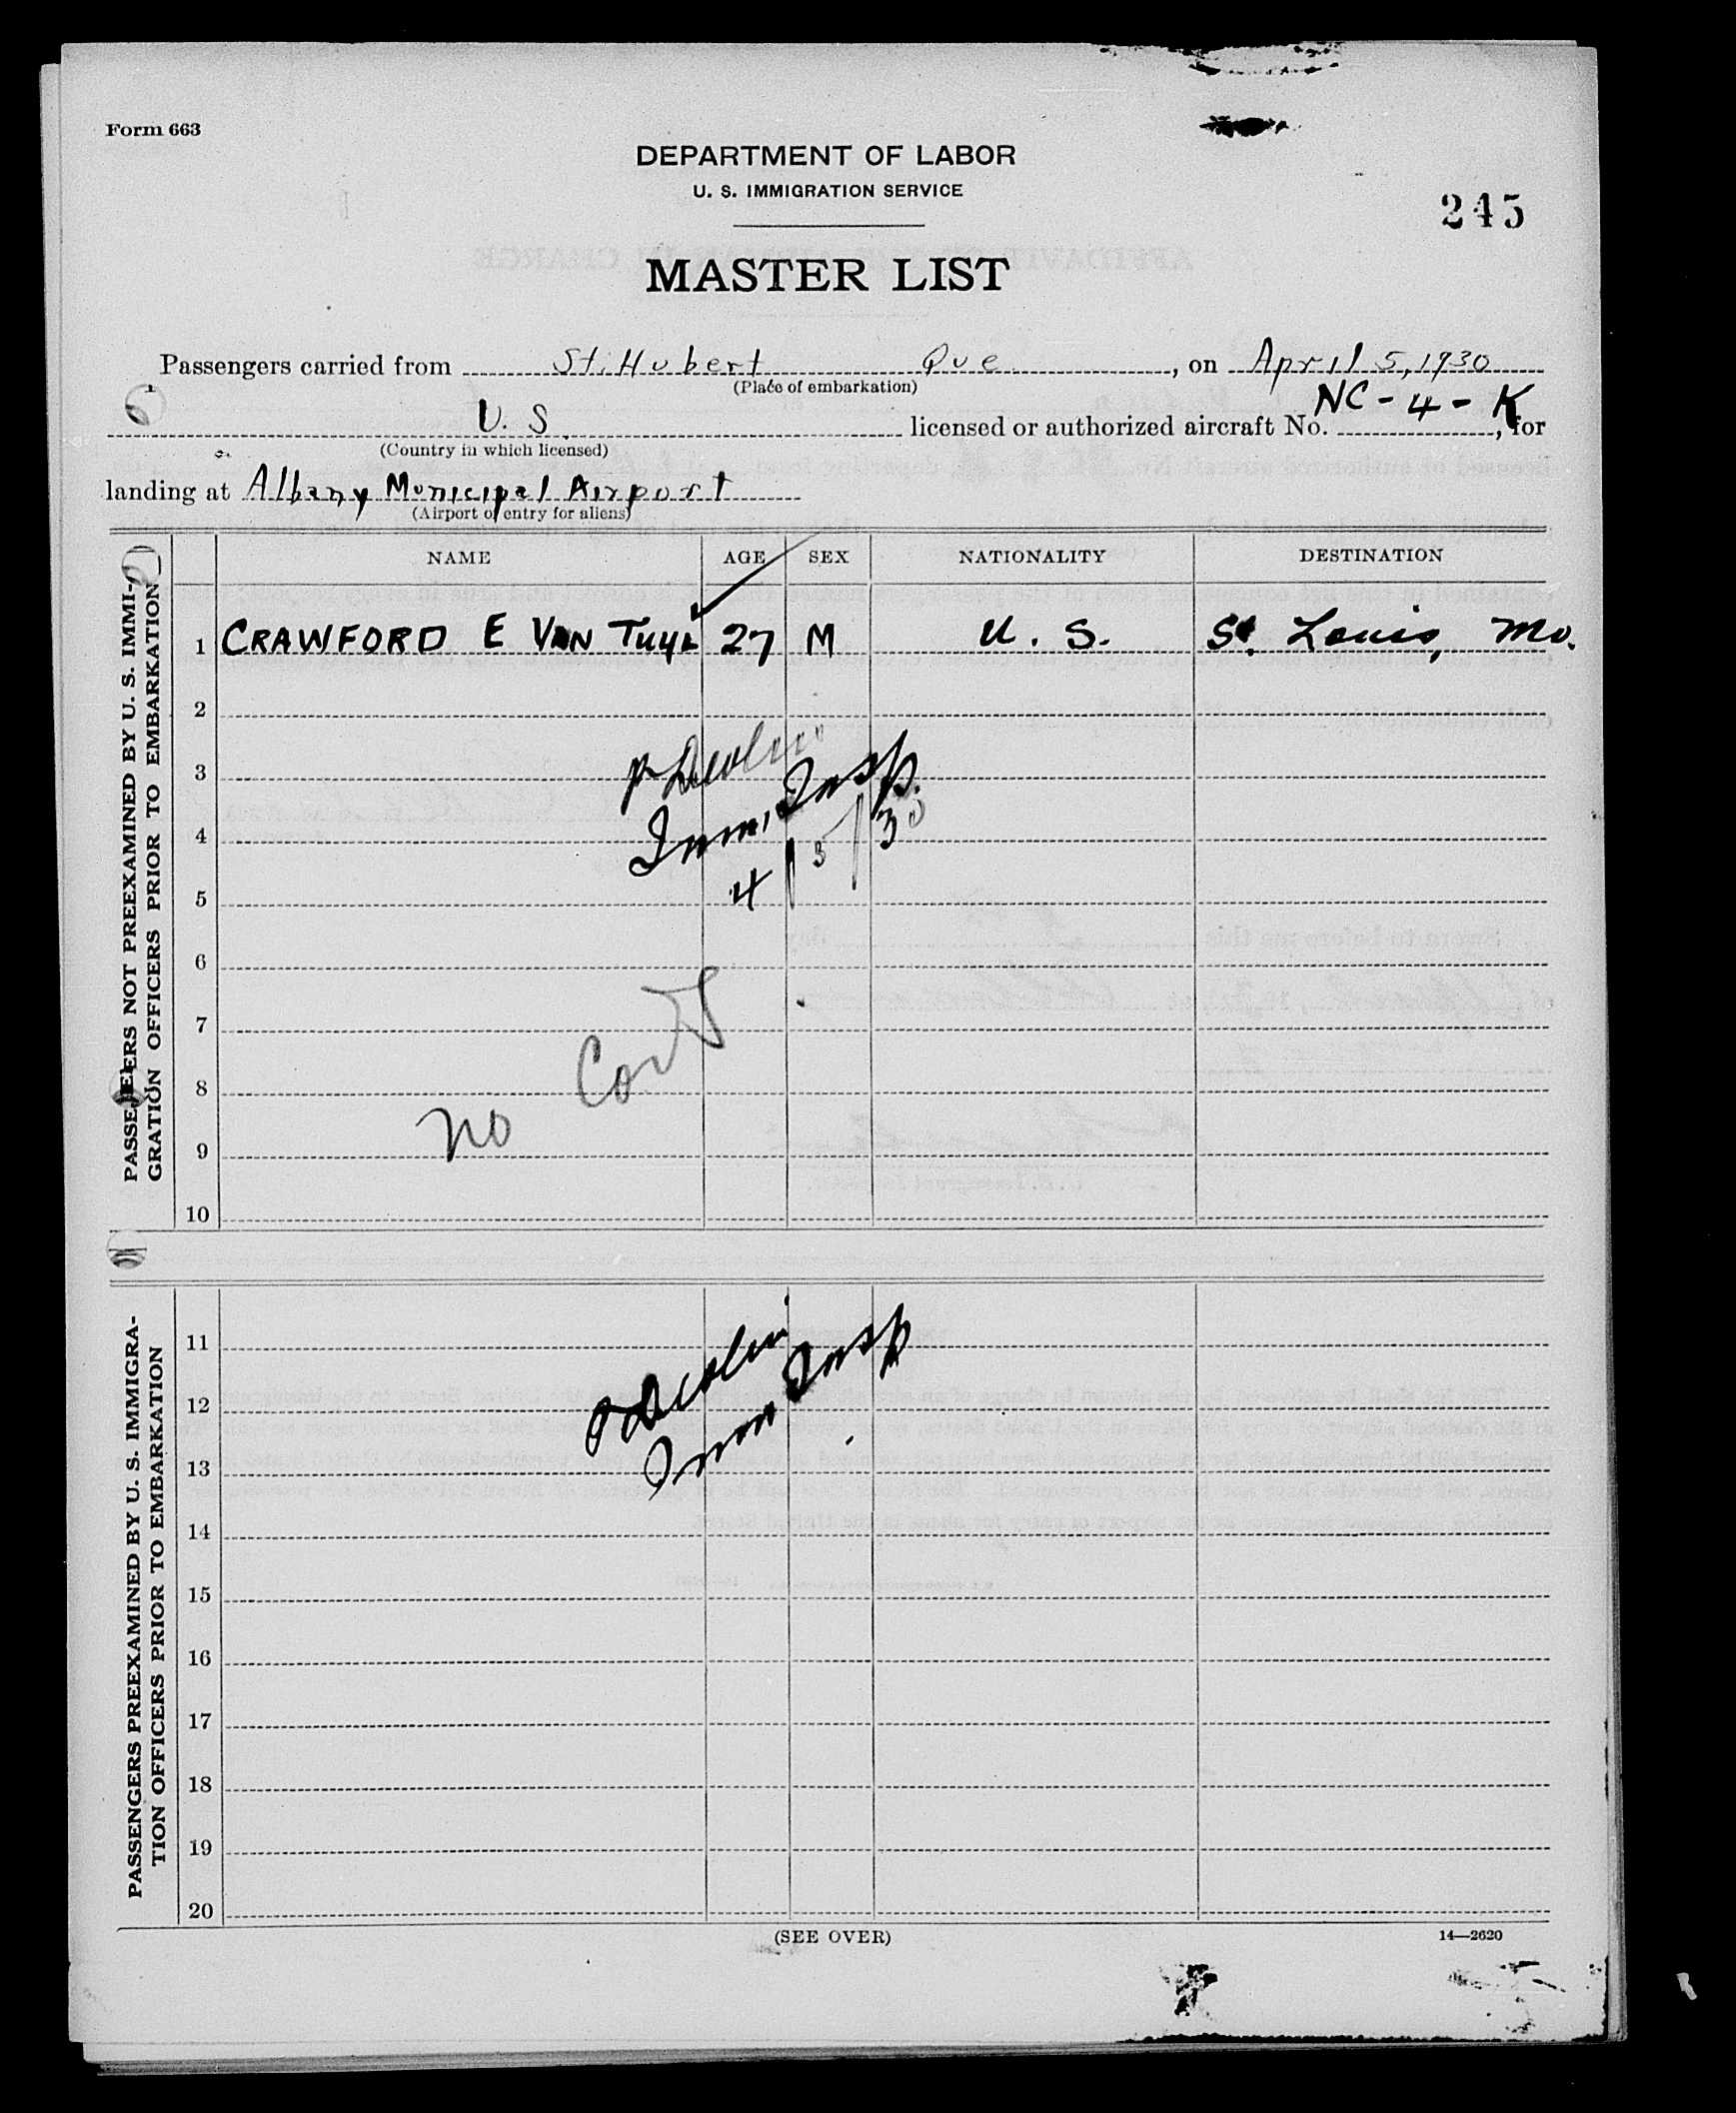 Form 663
DEPARTMENT OF LABOR
U. S. IMMIGRATION SERVICE
245
MASTER LIST
Passengers carried from St. Hubert Que , on April 5, 1930
(Place of embarkation)
U. S. licensed or authorized aircraft No. NC-4-K, for
(Country in which licensed)
landing at Albany Municipal Airport
(Airport of entry for aliens)
NAME AGE SEX NATIONALITY DESTINATION
PASSENGERS NOT PREEXAMINED BY U. S. IMMI-
GRATION OFFICERS PRIOR TO EMBARKATION
1 CRAWFORD E VAN TUYL 27 M U. S. St. Louis, Mo.
2
3
Imm. Insp.
4
4/5/30
5
6
7
8
No Cont
9
10
PASSENGERS PREEXAMINED BY U. S. IMMIGRA-
TION OFFICERS PRIOR TO EMBARKATION
11
12
Imm Insp
13
14
15
16
17
18
19
20
(SEE OVER)
14—2620